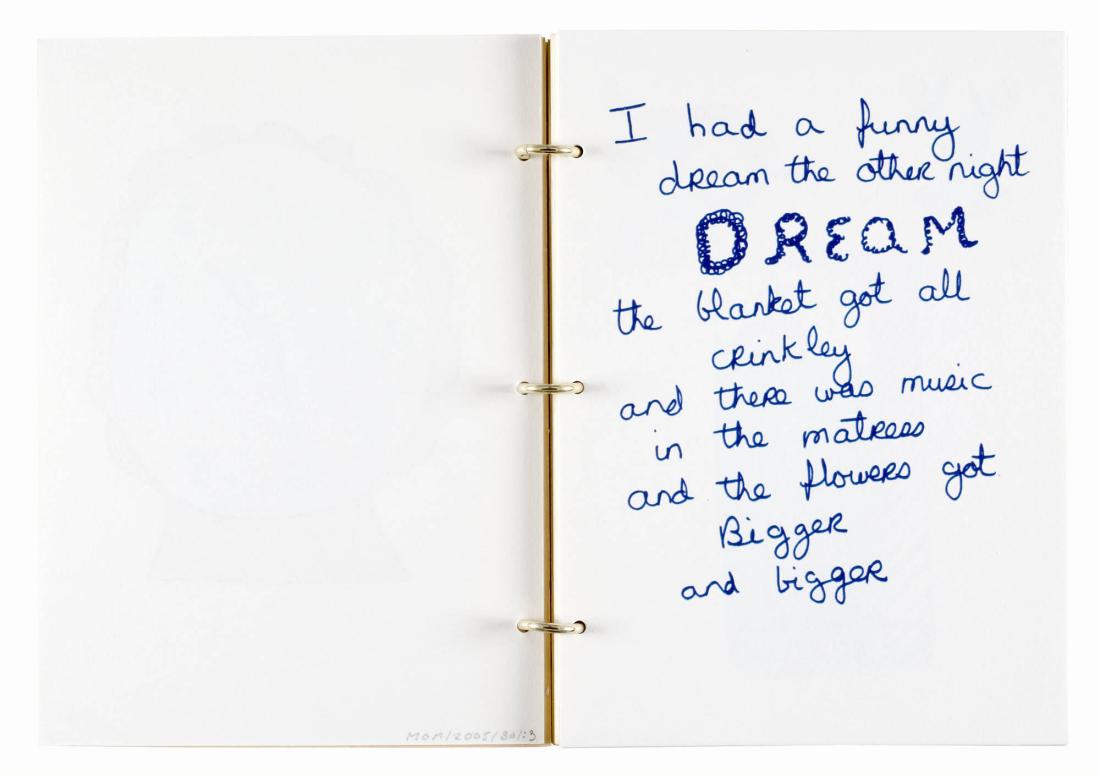 MOM/2005/80/:3
I had a funny
dream the other night
DREAM
the blanket got all
crinkley
and there was music
in the matress
and the flowers got
Bigger
and bigger